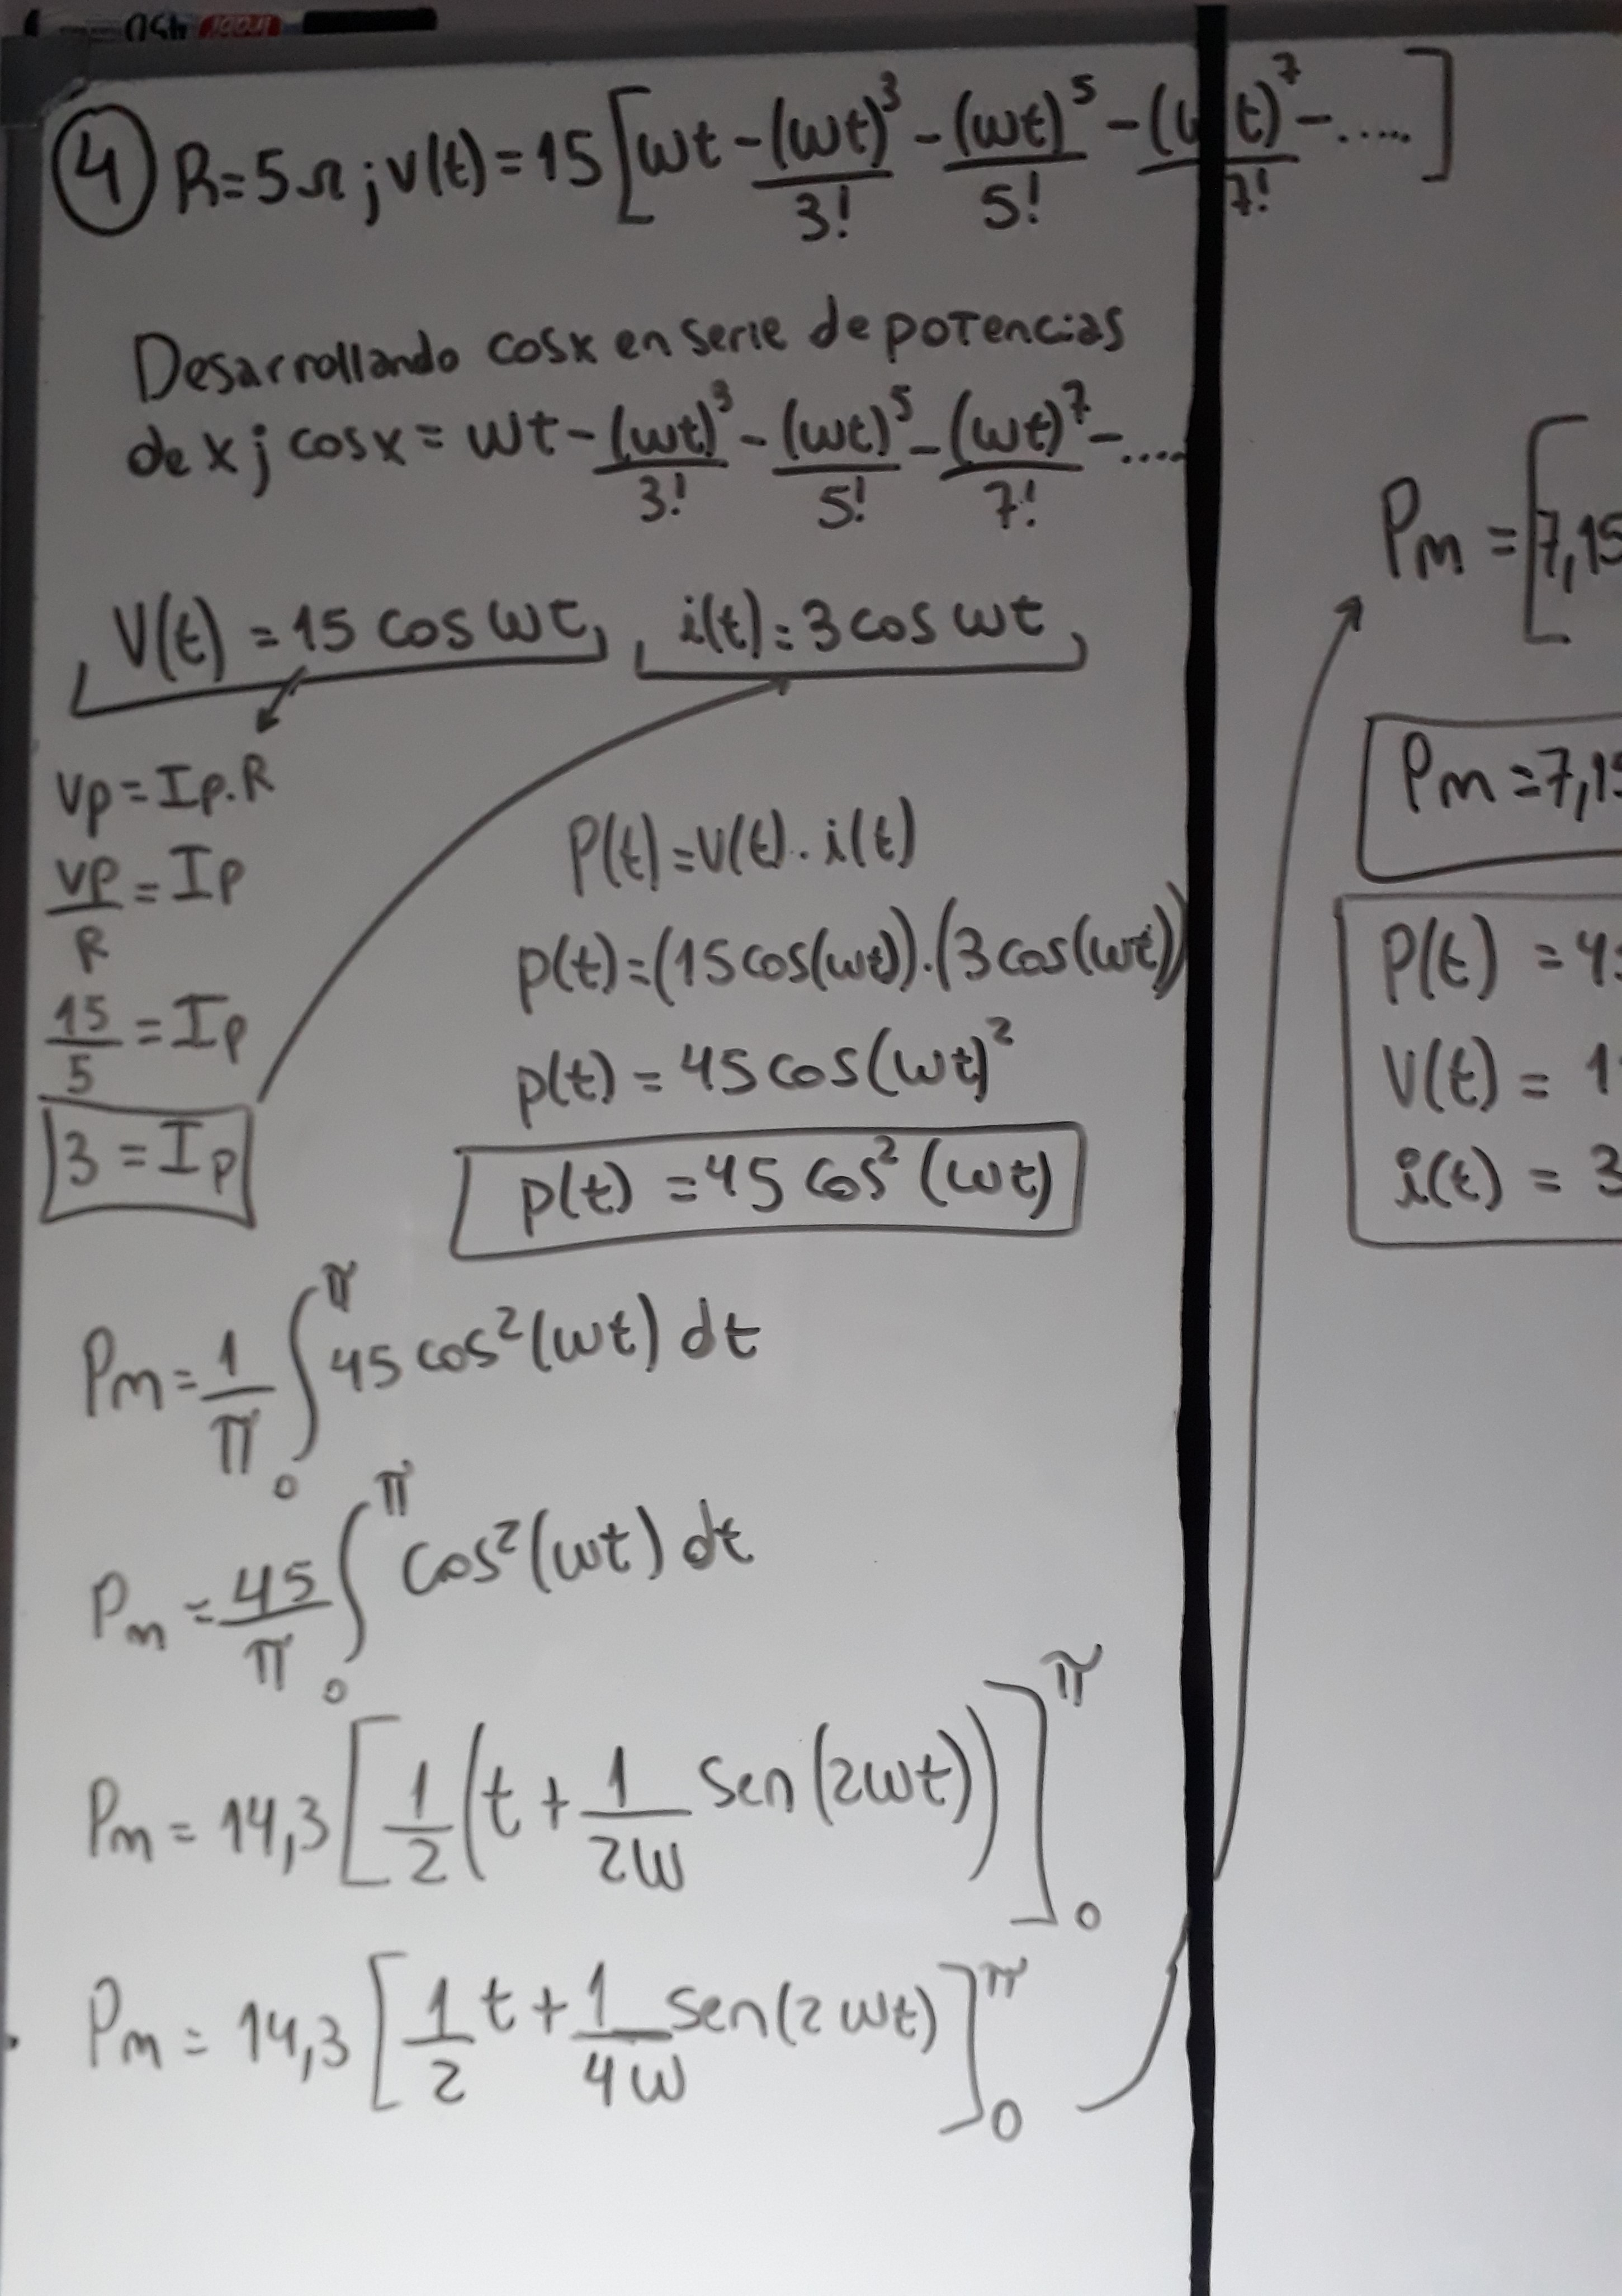 ④ R=5Ω ; v(t)=15 [wt - (wt)³/3! - (wt)⁵/5! - (wt)⁷/7! - .....]
Desarrollando cosx en serie de potencias
de x ; cosx = wt - (wt)³/3! - (wt)⁵/5! - (wt)⁷/7! - ....
V(t) = 15 cos wt, i(t) = 3 cos wt,
Vp = Ip.R
Vp/R = Ip
15/5 = Ip
3 = Ip
P(t) = v(t) . i(t)
p(t) = (15cos(wt)).(3cos(wt))
p(t) = 45cos(wt)²
p(t) = 45 cos² (wt)
Pm = 1/π ∫₀^π 45 cos²(wt) dt
Pm = 45/π ∫₀^π cos²(wt) dt
Pm = 14,3 [1/2 (t + 1/2w Sen(2wt))]₀^π
Pm = 14,3 [1/2 t + 1/4w Sen(2wt)]₀^π
Pm = [7,15
Pm = 7,15
P(t) = 4
V(t) = 1
i(t) = 3